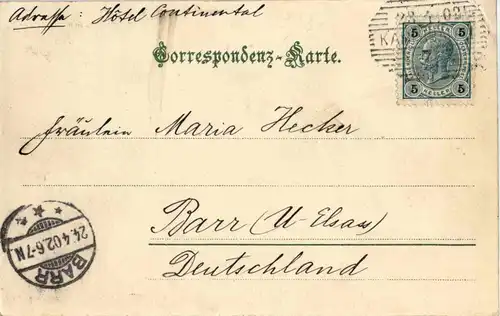 Adresse: Hôtel Continental
Correspondenz-Karte.
5 5
HELLER
5 5
Fräulein Maria Hecker
Barr (U-Elsass)
Deutschland
BARR
24.4.02.6-7N